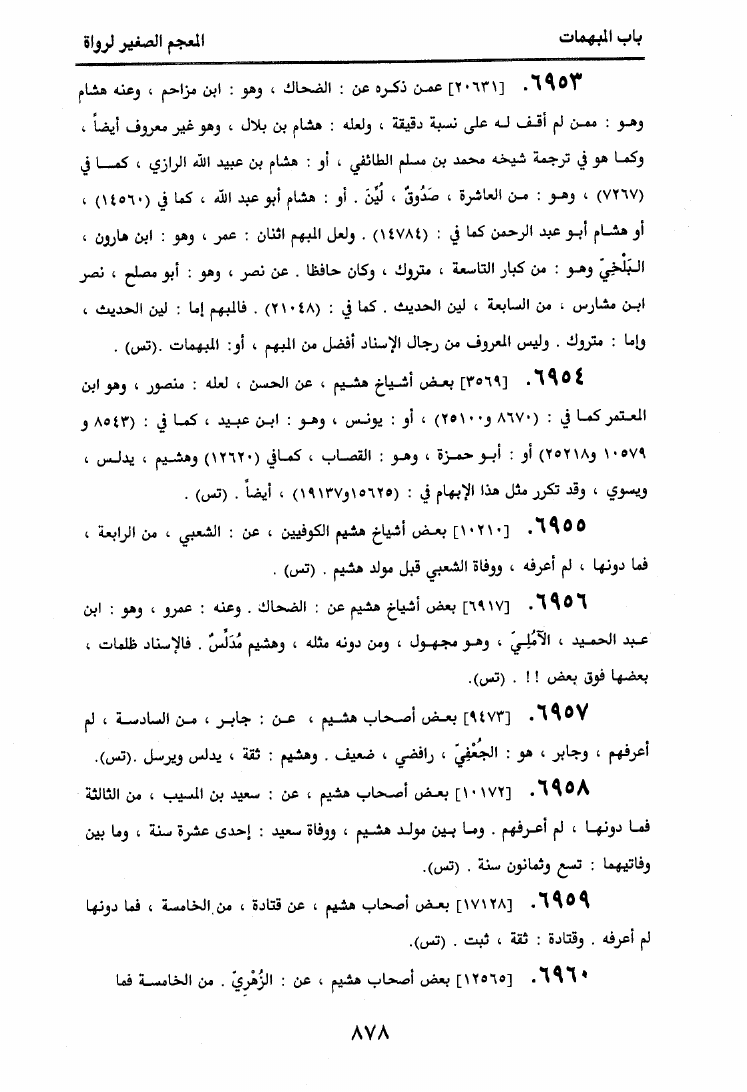 باب المبهمات
المعجم الصغير لرواة
٦٩٥٣. [٢٠٦٣١] عمن ذكره عن : الضحاك ، وهو : ابن مزاحم ، وعنه هشام
وهو : ممن لم أقف له على نسبة دقيقة ، ولعله : هشام بن بلال ، وهو غير معروف أيضاً ،
وكما هو في ترجمة شيخه محمد بن مسلم الطائفي ، أو : هشام بن عبيد الله الرازي ، كما في
(٧٢٦٧) ، وهو : من العاشرة ، صَدُوقٌ ، لُيِّنَ . أو : هشام أبو عبد الله ، كما في (١٤٥٦٠) ،
أو هشام أبو عبد الرحمن كما في : (١٤٧٨٤) . ولعل المبهم اثنان : عمر ، وهو : ابن هارون ،
البَلْخِيّ وهو : من كبار التاسعة ، متروك ، وكان حافظا . عن نصر ، وهو : أبو مصلح ، نصر
ابن مشارس ، من السابعة ، لين الحديث . كما في : (٢١٠٤٨) . فالمبهم إما : لين الحديث ،
وإما : متروك . وليس المعروف من رجال الإسناد أفضل من المبهم ، أو: المبهمات .(تس) .
٦٩٥٤. [٣٥٦٩] بعض أشياخ هشيم ، عن الحسن ، لعله : منصور ، وهو ابن
المعتمر كما في : (٨٦٧٠ و٢٥١٠٠) ، أو : يونس ، وهو : ابن عبيد ، كما في : (٨٥٤٣ و
١٠٥٧٩ و٢٥٢١٨) أو : أبو حمزة ، وهو : القصاب ، كمافي (١٢٦٢٠) وهشيم ، يدلس ،
ويسوي ، وقد تكرر مثل هذا الإبهام في : (١٥٦٢٥و١٩١٣٧) ، أيضاً . (تس) .
٦٩٥٥. [١٠٢١٠] بعض أشياخ هشيم الكوفيين ، عن : الشعبي ، من الرابعة ،
فما دونها ، لم أعرفه ، ووفاة الشعبي قبل مولد هشيم . (تس) .
٦٩٥٦. [٦٩١٧] بعض أشياخ هشيم عن : الضحاك . وعنه : عمرو ، وهو : ابن
عبد الحميد ، الآمُلِيّ ، وهو مجهول ، ومن دونه مثله ، وهشيم مُدَلِّسٌ . فالإسناد ظلمات ،
بعضها فوق بعض !! . (تس).
٦٩٥٧. [٩٤٧٣] بعض أصحاب هشيم ، عن : جابر ، من السادسة ، لم
أعرفهم ، وجابر ، هو : الجُعْفِيّ ، رافضي ، ضعيف . وهشيم : ثقة ، يدلس ويرسل .(تس).
٦٩٥٨. [١٠١٧٢] بعض أصحاب هشيم ، عن : سعيد بن المسيب ، من الثالثة
فما دونها ، لم أعرفهم . وما بين مولد هشيم ، ووفاة سعيد : إحدى عشرة سنة ، وما بين
وفاتيهما : تسع وثمانون سنة . (تس).
٦٩٥٩. [١٧١٢٨] بعض أصحاب هشيم ، عن قتادة ، من الخامسة ، فما دونها
لم أعرفه . وقتادة : ثقة ، ثبت . (تس).
٦٩٦٠. [١٢٥٦٥] بعض أصحاب هشيم ، عن : الزُهْرِيّ . من الخامسة فما
٨٧٨